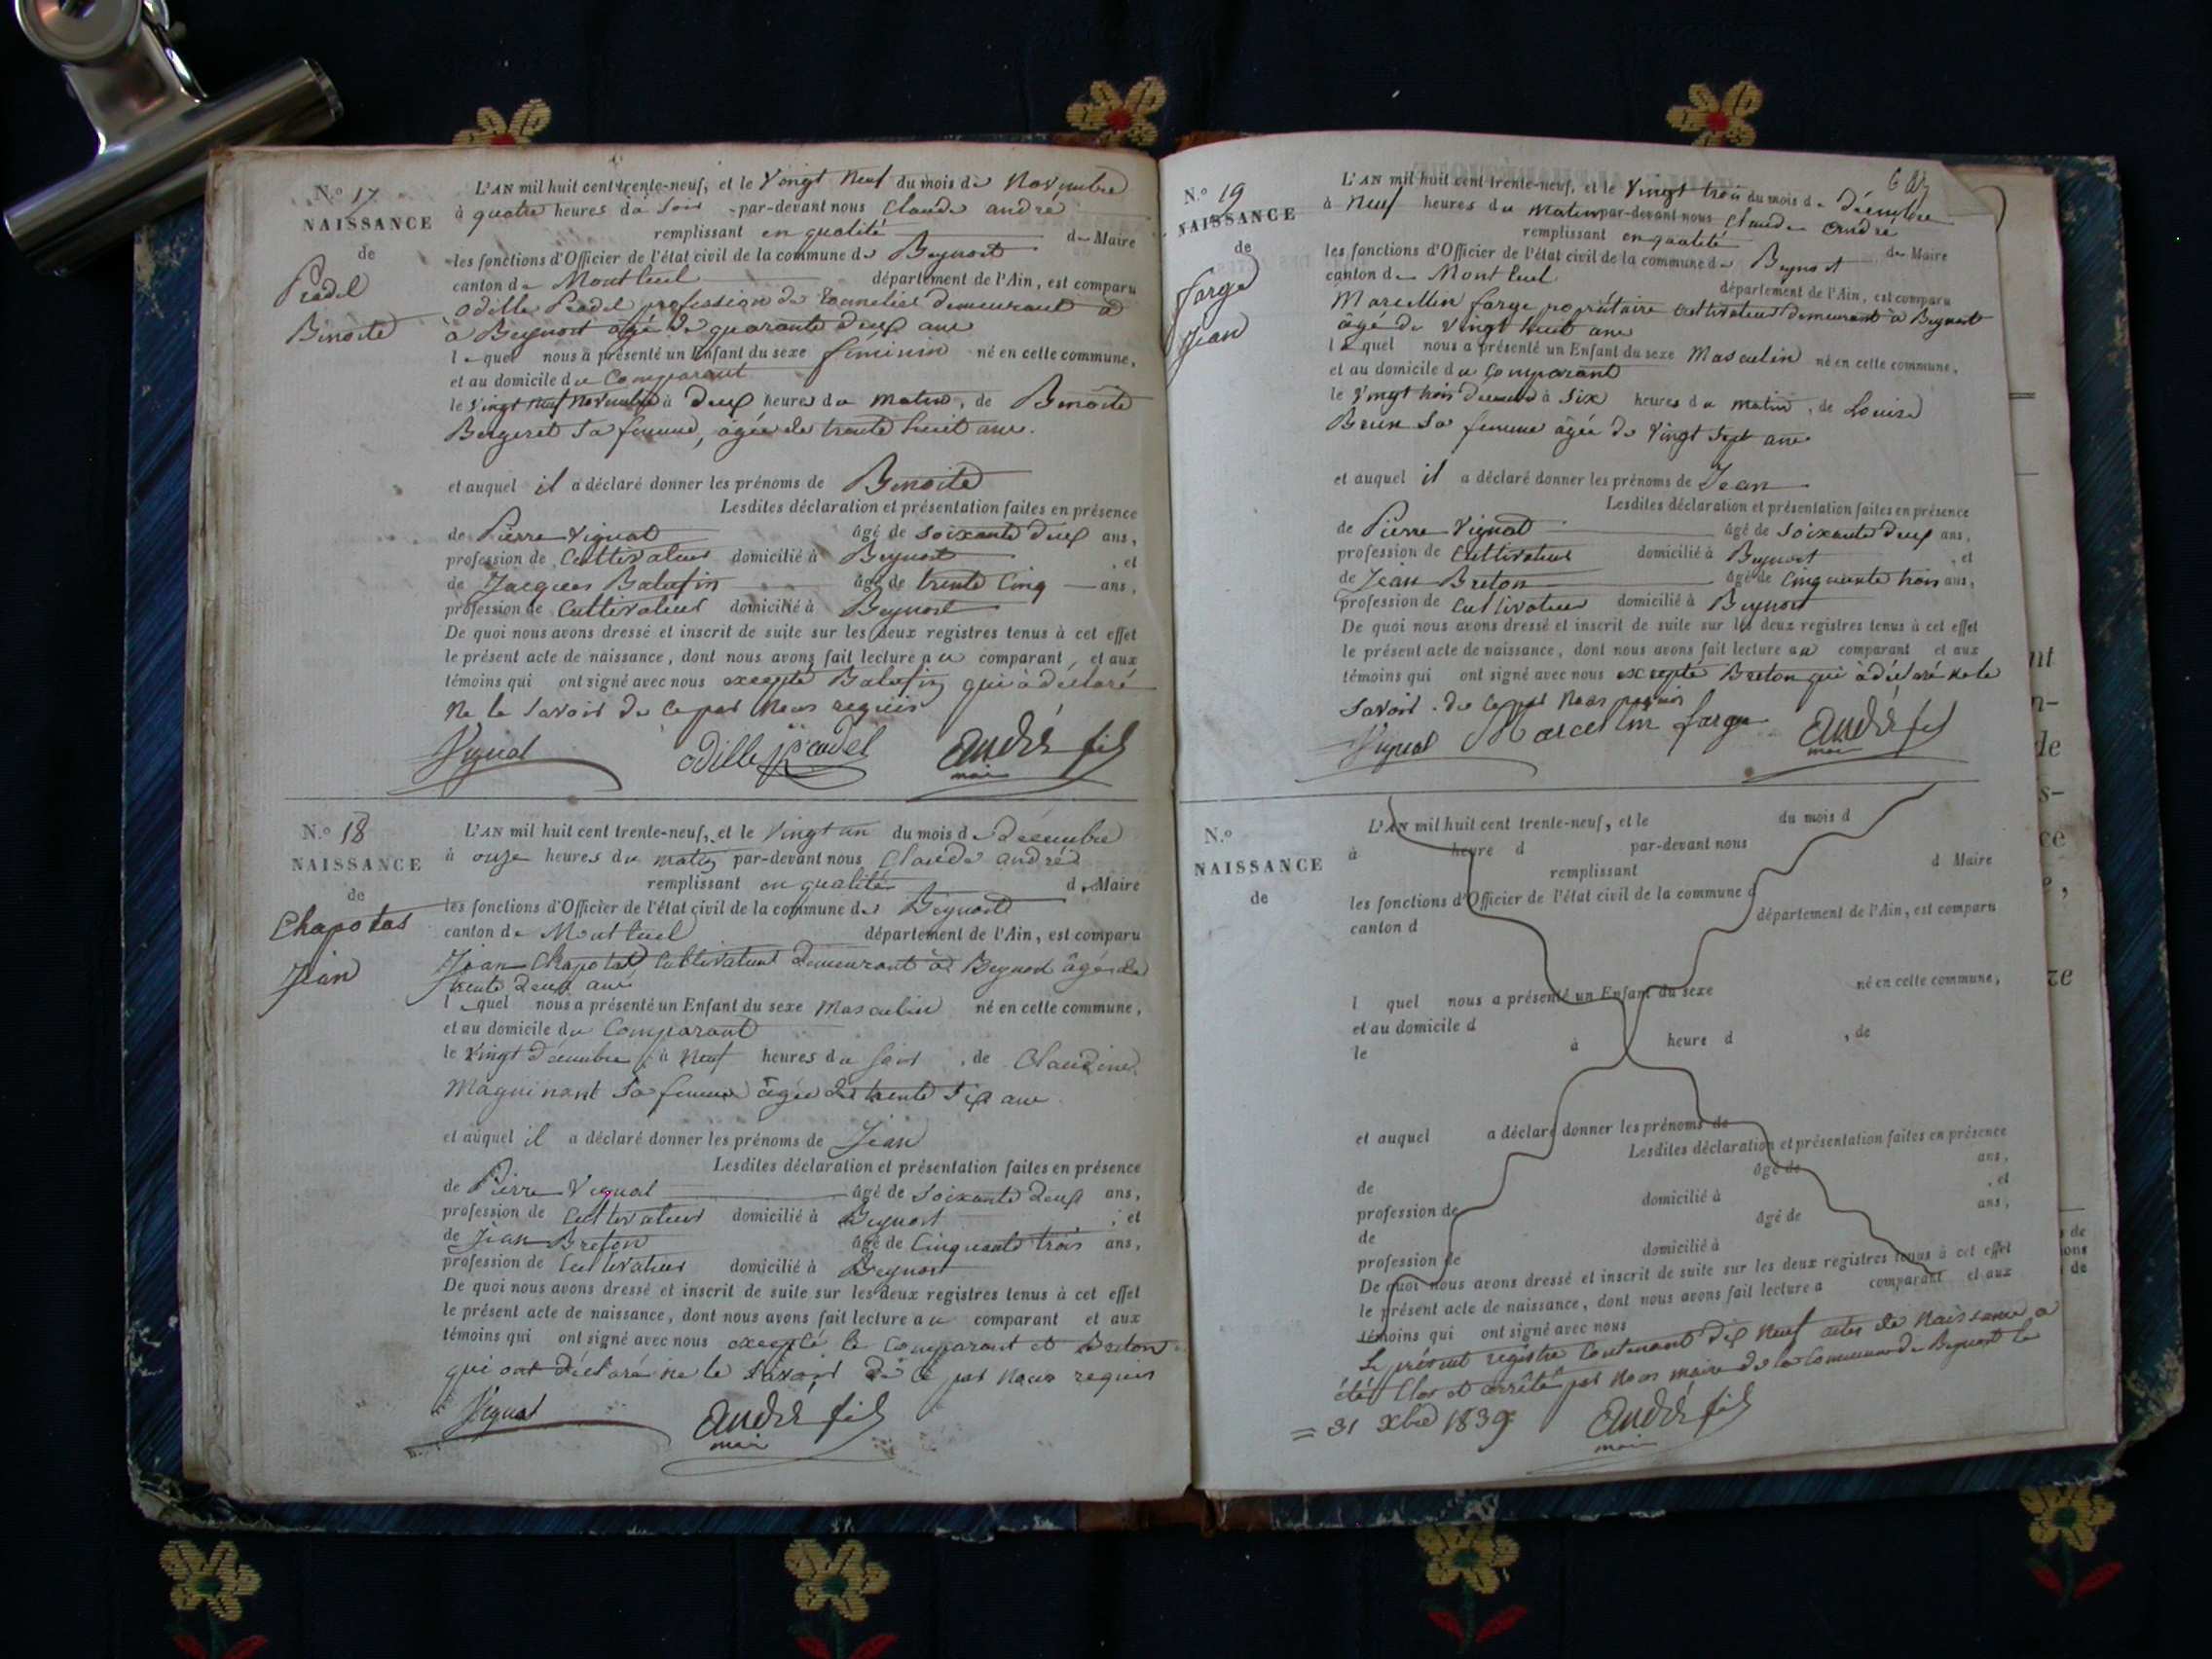 N.º 17
NAISSANCE
de
Pradel
Benoite
L'AN mil huit cent trente-neuf, et le Vingt Neuf du mois de Novembre
à quatre heures du Soir par-devant nous Claude andré
remplissant en qualité de Maire
les fonctions d'Officier de l'état civil de la commune de Beynost
canton de Montluel département de l'Ain, est comparu
Odille Pradel profession de Tonnelier demeurant à
à Beynost âgé de quarante deux ans
lequel nous a présenté un Enfant du sexe féminin né en cette commune,
et au domicile du Comparant
le Vingt neuf Novembre à Deux heures du matin, de Benoite
Bergeret Sa femme, âgée de trente huit ans.
et auquel il a déclaré donner les prénoms de Benoite
Lesdites déclaration et présentation faites en présence
de Pierre Vignat âgé de Soixante deux ans,
profession de Cultivateur domicilié à Beynost, et
de Jacques Balufin âgé de trente Cinq ans,
profession de Cultivateur domicilié à Beynost
De quoi nous avons dressé et inscrit de suite sur les deux registres tenus à cet effet
le présent acte de naissance, dont nous avons fait lecture au comparant, et aux
témoins qui ont signé avec nous excepté Balufin qui à déclaré
Ne le Savoir de ce par Nous requis
Vignat Odille Pradel André fils
maire
N.º 18
NAISSANCE
de
Chapotas
Jean
L'AN mil huit cent trente-neuf, et le Vingt un du mois de Décembre
à onze heures du matin par-devant nous Claude andré
remplissant en qualité de Maire
les fonctions d'Officier de l'état civil de la commune de Beynost
canton de Montluel département de l'Ain, est comparu
Jean Chapotas Cultivateur Demeurant à Beynost âgé de
trente deux ans
lequel nous a présenté un Enfant du sexe Masculin né en cette commune,
et au domicile du Comparant
le Vingt décembre à Neuf heures du Soir, de Claudine
Maguinant Sa femme âgée de trente Six ans
et auquel il a déclaré donner les prénoms de Jean
Lesdites déclaration et présentation faites en présence
de Pierre Vignat âgé de Soixante deux ans,
profession de Cultivateur domicilié à Beynost, et
de Jean Breton âgé de Cinquante trois ans,
profession de Cultivateur domicilié à Beynost
De quoi nous avons dressé et inscrit de suite sur les deux registres tenus à cet effet
le présent acte de naissance, dont nous avons fait lecture au comparant et aux
témoins qui ont signé avec nous excepté le Comparant et Breton
qui ont déclaré ne le Savoir de ce par Nous requis
Vignat André fils
maire
N.º 19
NAISSANCE
de
farge
Jean
L'AN mil huit cent trente-neuf, et le Vingt trois du mois de Décembre
à Neuf heures du matin par-devant nous Claude André
remplissant en qualité de Maire
les fonctions d'Officier de l'état civil de la commune de Beynost
canton de Montluel département de l'Ain, est comparu
Marcellin farge propriétaire Cultivateur demeurant à Beynost
âgé de Vingt huit ans
lequel nous a présenté un Enfant du sexe Masculin né en cette commune,
et au domicile du Comparant
le Vingt trois Décembre à Six heures du matin, de Louise
Brun Sa femme âgée de Vingt Sept ans
et auquel il a déclaré donner les prénoms de Jean
Lesdites déclaration et présentation faites en présence
de Pierre Vignat âgé de Soixante deux ans,
profession de Cultivateur domicilié à Beynost, et
de Jean Breton âgé de Cinquante trois ans,
profession de Cultivateur domicilié à Beynost
De quoi nous avons dressé et inscrit de suite sur les deux registres tenus à cet effet
le présent acte de naissance, dont nous avons fait lecture au comparant et aux
témoins qui ont signé avec nous excepté Breton qui à déclaré ne le
Savoir de ce par Nous requis
Vignat Marcelin farge André fils
maire
N.º
NAISSANCE
de
L'AN mil huit cent trente-neuf, et le du mois d
à heure d par-devant nous
remplissant d Maire
les fonctions d'Officier de l'état civil de la commune d
canton d département de l'Ain, est comparu
l quel nous a présenté un Enfant du sexe né en cette commune,
et au domicile d
le à heure d , de
et auquel a déclaré donner les prénoms de
Lesdites déclaration et présentation faites en présence
de âgé de ans,
profession de domicilié à , et
de âgé de ans,
profession de domicilié à
De quoi nous avons dressé et inscrit de suite sur les deux registres tenus à cet effet
le présent acte de naissance, dont nous avons fait lecture a comparant et aux
témoins qui ont signé avec nous
Le présent registre Contenant dix Neuf actes de Naissance a
été Clos et arrêté par Nous maire de la Commune de Beynost le
= 31 Xbre 1839 André fils
maire